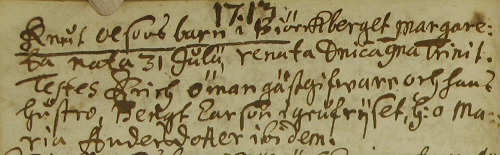 1713
Knut Olsons barn i Biörckberget margare:
ta nata 31 Julii renata Dnica 9na trinit.
Testes Erich öman gästgifwaren och hans
hustro, Bengt Larson i grufriset, h:o Ma:
ria Andersdotter ibidem.